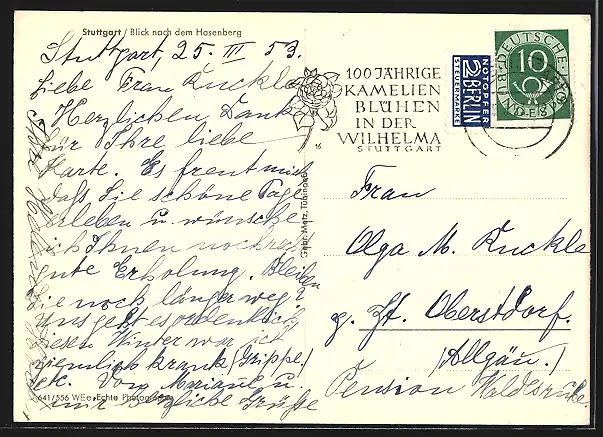 Stuttgart / Blick nach dem Hasenberg
Stuttgart, 25. III 53.
Liebe Frau Kuckle
Herzlichen Dank
für Ihre liebe
Karte. Es freut mich
daß Sie schöne Tage
erleben u. wünsche
ich Ihnen noch recht
gute Erholung. Bleiben
Sie noch länger weg?
Uns geht es ordentlich
diesen Winter war ich
ziemlich krank (Grippe)
etc. Von Mariane u.
mir herzliche Grüße
641/556 WEe. Echte Photographie
Gebr. Metz, Tübingen
100 JÄHRIGE
KAMELIEN
BLÜHEN
IN DER
WILHELMA
STUTTGART
16
NOTOPFER
2 BERLIN
STEUERMARKE
DEUTSCHE
BUNDESPOST
10
Frau
Olga M. Kuckle
z. Zt. Oberstdorf.
(Allgäu.)
Pension